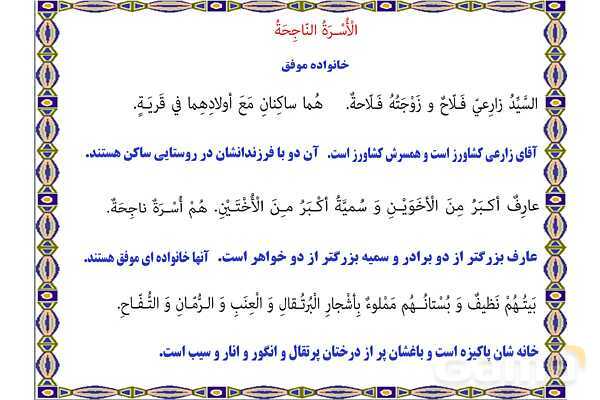 الْأُسْـرَةُ النّاجِحَةُ
خانواده موفق
السَّیِّدُ زارِعيّ فَـلّاحٌ و زَوْجَتُهُ فَـلّاحةٌ. هُما ساکِنانِ مَعَ أولادِهِما في قَریَـةٍ.
آقای زارعی کشاورز است و همسرش کشاورز است. آن دو با فرزندانشان در روستایی ساکن هستند.
عارِفٌ أکـبَرُ مِنَ الْأخَوَیْـنِ وَ سُمیَّةُ أکْـبَرُ مـِنَ الْأُخْـتَیْـنِ. هُمْ أُسْـرَةٌ ناجِحَةٌ.
عارف بزرگتر از دو برادر و سمیه بزرگتر از دو خواهر است. آنها خانواده ای موفق هستند.
بَیتُـهُمْ نَظیفٌ وَ بُسْتانُـهُم مَمْلوءٌ بِأشْجارِ الْبُرتُـقالِ وَ الْعِنَبِ وَ الـرُّمّانِ وَ التُّـفّـاحِ.
خانه شان پاکیزه است و باغشان پر از درختان پرتقال و انگور و انار و سیب است.
Gama